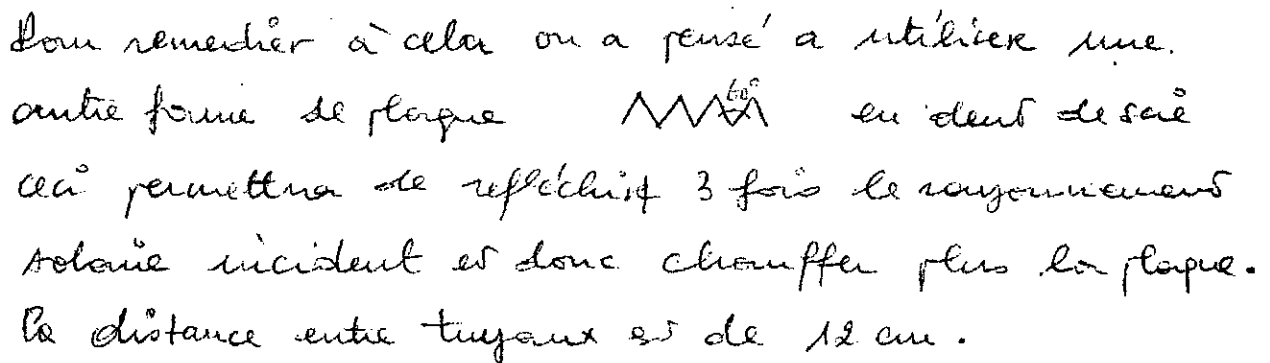 Pour remedier à cela on a pensé a utiliser une.
autre forme de plaque 60° en dent de scie
ceci permettra de réfléchir 3 fois le rayonnement
solaire incident et donc chauffer plus la plaque.
La distance entre tuyaux est de 12 cm.